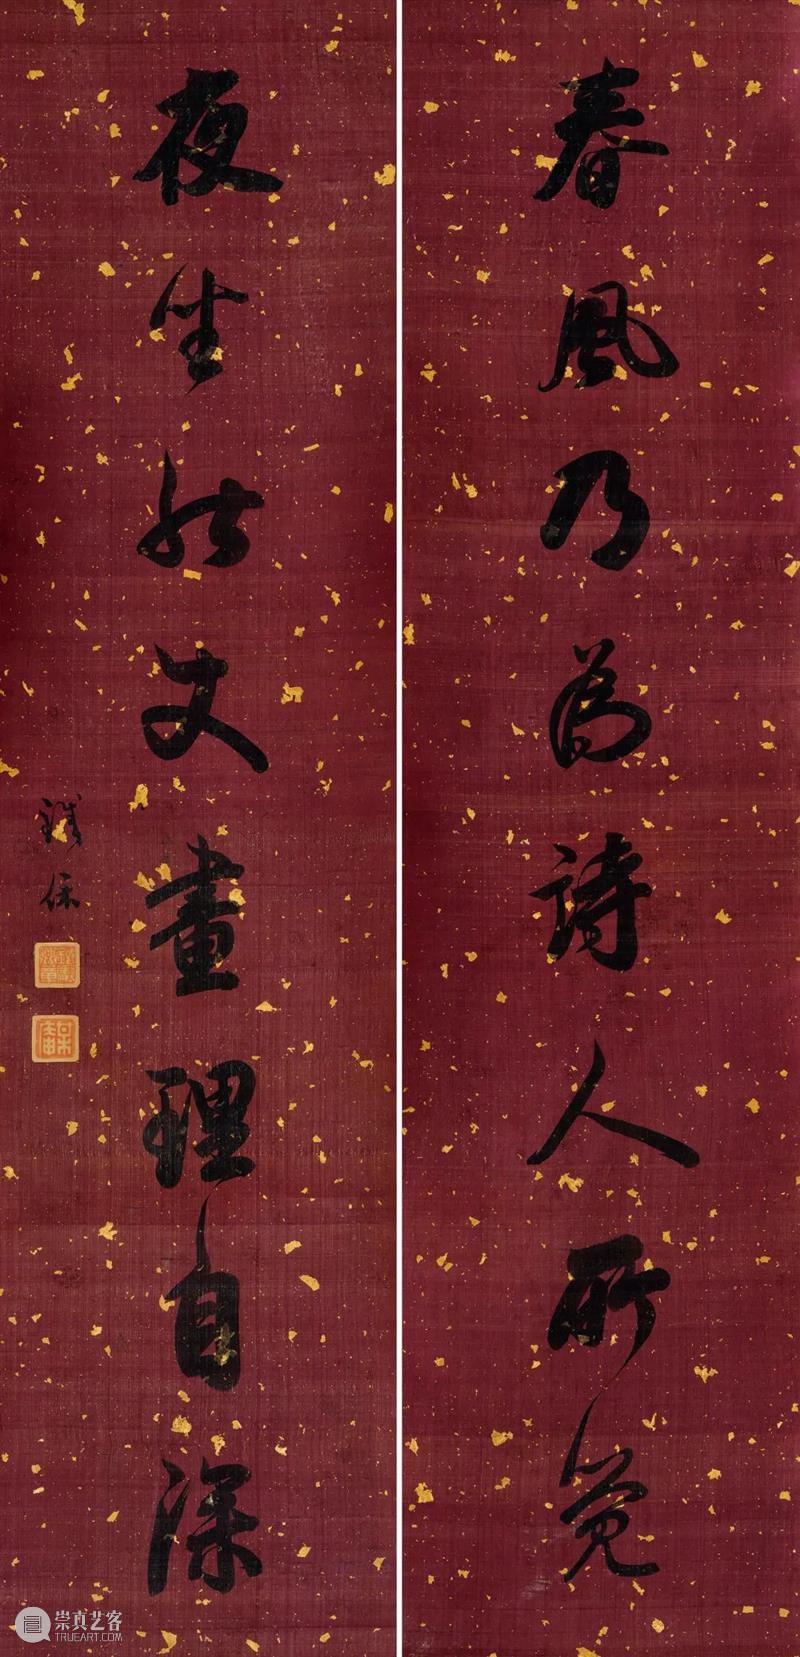 春風乃為詩人所覺
夜坐畫理自深
鐵保
崇真艺客
TRUEART.COM